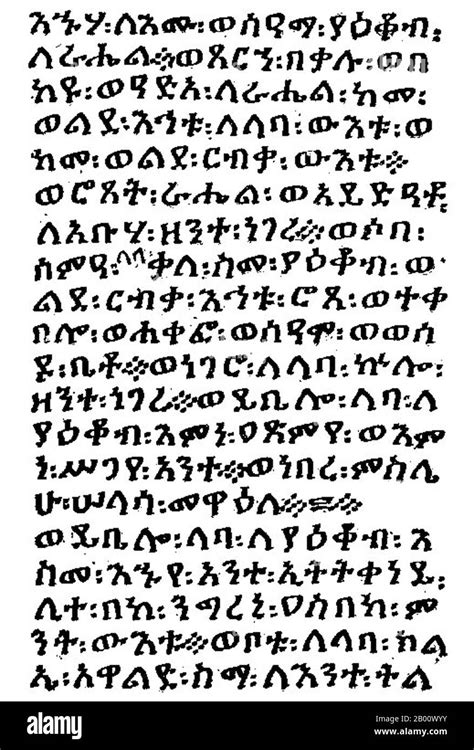 እኁሃ፡ለእሙ፡ወሰዓማ፡ያዕቆብ፡
ለራሔል፨ወጸርኀ፡በቃሉ፡ወበ
ከየ፡ለራሔል፡ከመ፡
ወልደ፡እኅቱ፡ለላባ፡ውእቱ፡ወ
ከመ፡ወልደ፡ርብቃ፡ውእቱ፨
ወሮጸት፡ራሔል፡ወአይድዓቶ፡
ለአቡሃ፡ዘንተ፡ነገረ፨ወሶበ፡
ሰምዓ፡ላባ፡ቃለ፡ስመ፡ያዕቆብ፡ወ
ልደ፡ርብቃ፡እኅቱ፡ሮጸ፡ወተቀ
በሎ፡ወሐቀፎ፡ወሰዓሞ፡ወወሰ
ዶ፡ቤቶ፨ወነገሮ፡ለላባ፡ኵሎ፡
ዘንተ፡ነገረ፨ወይቤሎ፡ላባ፡ለ
ያዕቆብ፡እምነ፡ዐጽምየ፡ወእም
ነ፡ሥጋየ፡አንተ፨ወነበረ፡ምስሌ
ሁ፡ሠላሳ፡መዋዕለ፨
ወይቤሎ፡ላባ፡ለያዕቆብ፡እ
ስመ፡እኁየ፡አንተ፡ኢትትቀነይ፡
ሊተ፡በከ፡ንግረኒ፡ዐስበከ፡ም
ንት፡ውእቱ፨ወቦቱ፡ለላባ፡ክል
ኤ፡አዋልድ፡ስማ፡ለእንተ፡ትል
alamy
Image ID: 2B00WYY
www.alamy.com